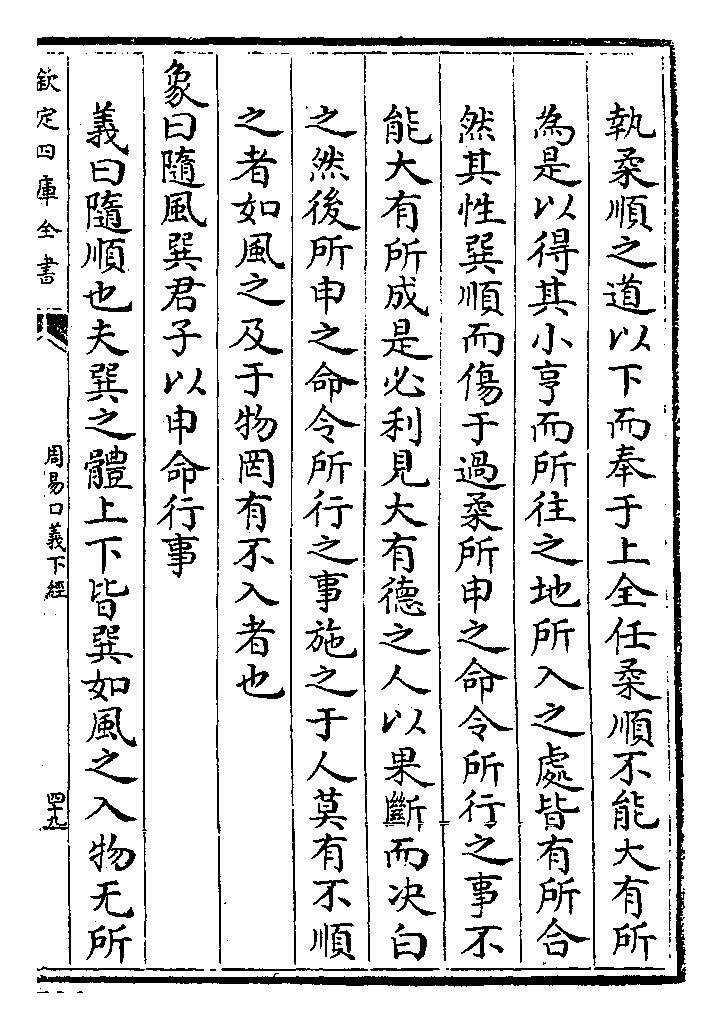 執柔順之道以下而奉于上全任柔順不能大有所
為是以得其小亨而所往之地所入之處皆有所合
然其性巽順而傷于過柔所申之命令所行之事不
能大有所成是必利見大有德之人以果斷而决白
之然後所申之命令所行之事施之于人莫有不順
之者如風之及于物罔有不入者也
象曰隨風巽君子以申命行事
義曰隨順也夫巽之體上下皆巽如風之入物无所
欽定四庫全書
周易口義下經
四十九